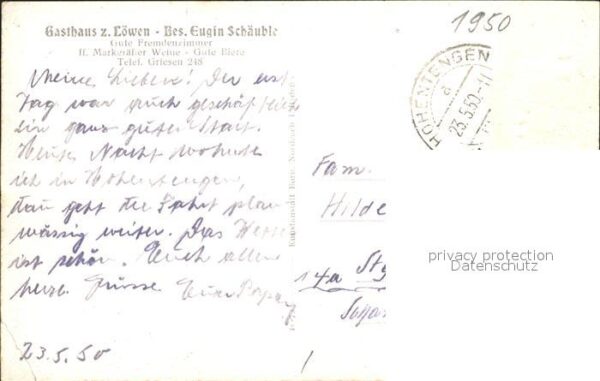 Gasthaus z. Löwen - Bes. Eugin Schäuble
Gute Fremdenzimmer
ff. Markgräfler Weine - Gute Biere
Telef. Griesen 248
1950
HOHENTENGEN
a
23.5.50.-11
Meine Lieben! Der erste
Tag war auch geschäftlich
ein ganz guter Start.
Heute Nacht wohnte
ich in Hohentengen,
dan geht die Fahrt plan
mässig weiter. Das Wetter
ist schön. Euch allen
herzl. Grüsse Euer
23.5.50
Fam.
Hilde
14a
privacy protection
Datenschutz